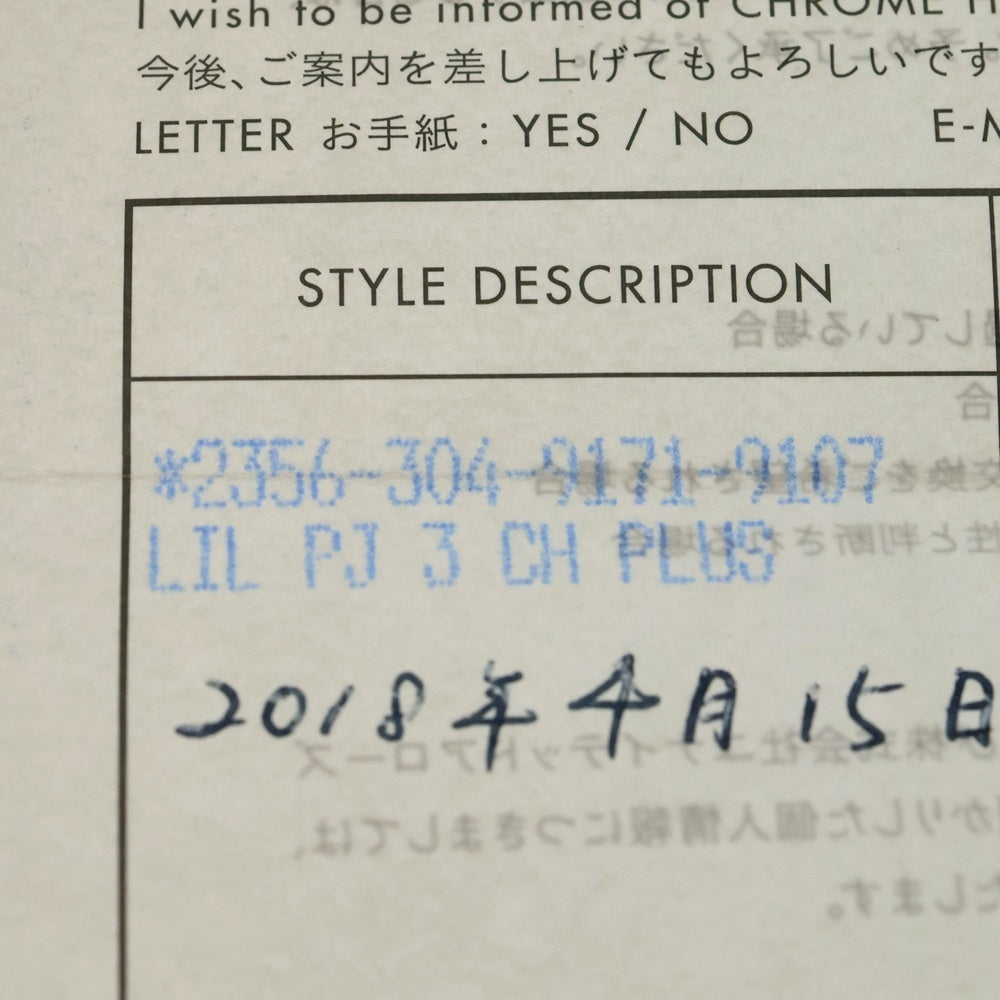 I wish to be informed of CHROME H
今後、ご案内を差し上げてもよろしいです
LETTER お手紙 : YES / NO E-M
STYLE DESCRIPTION
*2356-304-9171-9107
LIL PJ 3 CH PLUS
2018年4月15日